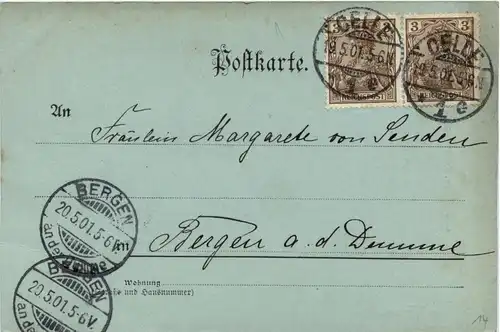 3 3
REICHSPOST
* CELLE
19.5.01.5-6N.
1 e
* CELLE
19.5.01.5-6N.
1 e
Postkarte.
An
Fräulein Margarete von Senden
BERGEN
20.5.01.5-6V.
an der
in
Bergen a. d. Dumme
BERGEN
20.5.01.5-6V.
an der
Wohnung
(Straße und Hausnummer)
14